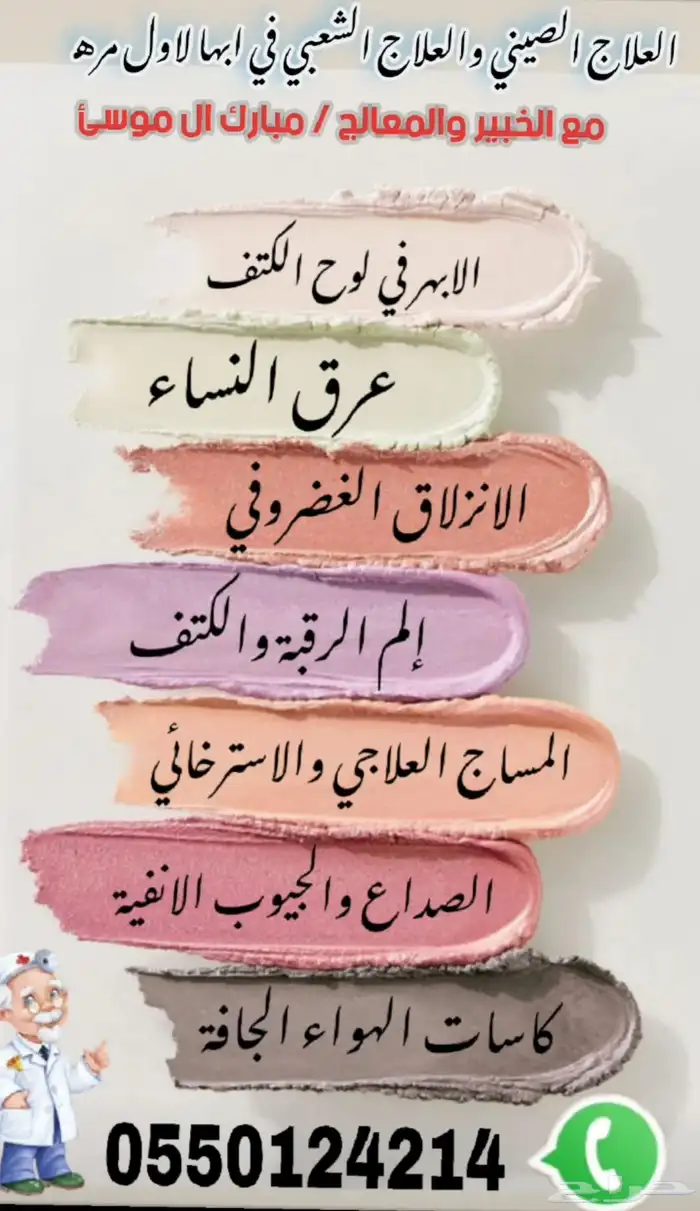 العلاج الصيني والعلاج الشعبي في ابها لاول مره
مع الخبير والمعالج / مبارك ال موسئ
الابهر في لوح الكتف
عرق النساء
الانزلاق الغضروفي
إلم الرقبة والكتف
المساج العلاجي والاسترخائي
الصداع والجيوب الانفية
كاسات الهواء الجافة
0550124214
حراج